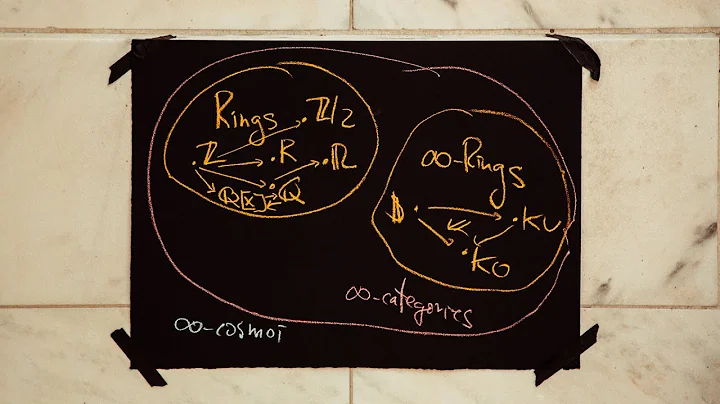 Rings
.ℤ/2
.ℤ
.R
.ℝ
ℚ[x]
.ℚ
∞-Rings
𝕊.
.KU
.KO
∞-categories
∞-cosmoi